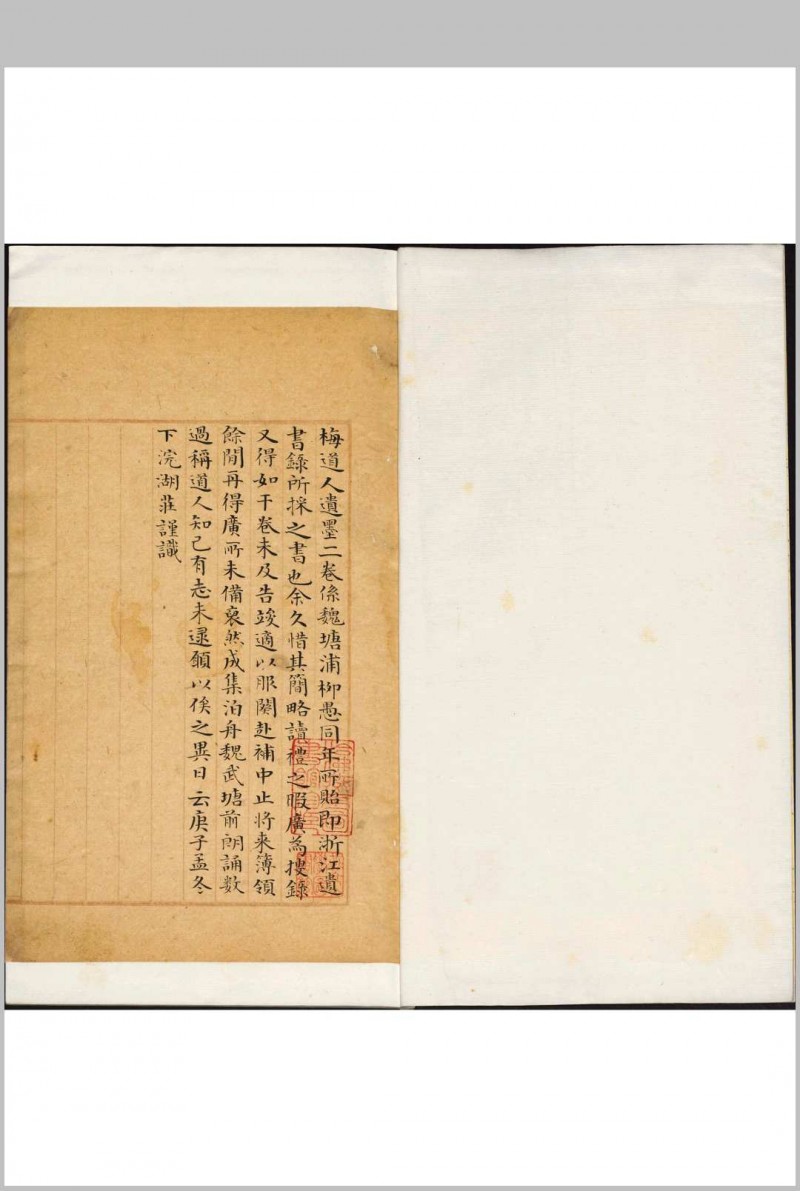 梅道人遺墨二卷係魏塘浦柳愚同年所貽即浙江遺
書錄所採之書也余久惜其簡略讀禮之暇廣為搜錄
又得如干卷未及告竣適以服闋赴補中止將來簿領
餘閒再得廣所未備裒然成集泊舟魏武塘前朗誦數
過稱道人知己有志未逮願以俟之異日云庚子孟冬
下浣湖莊謹識